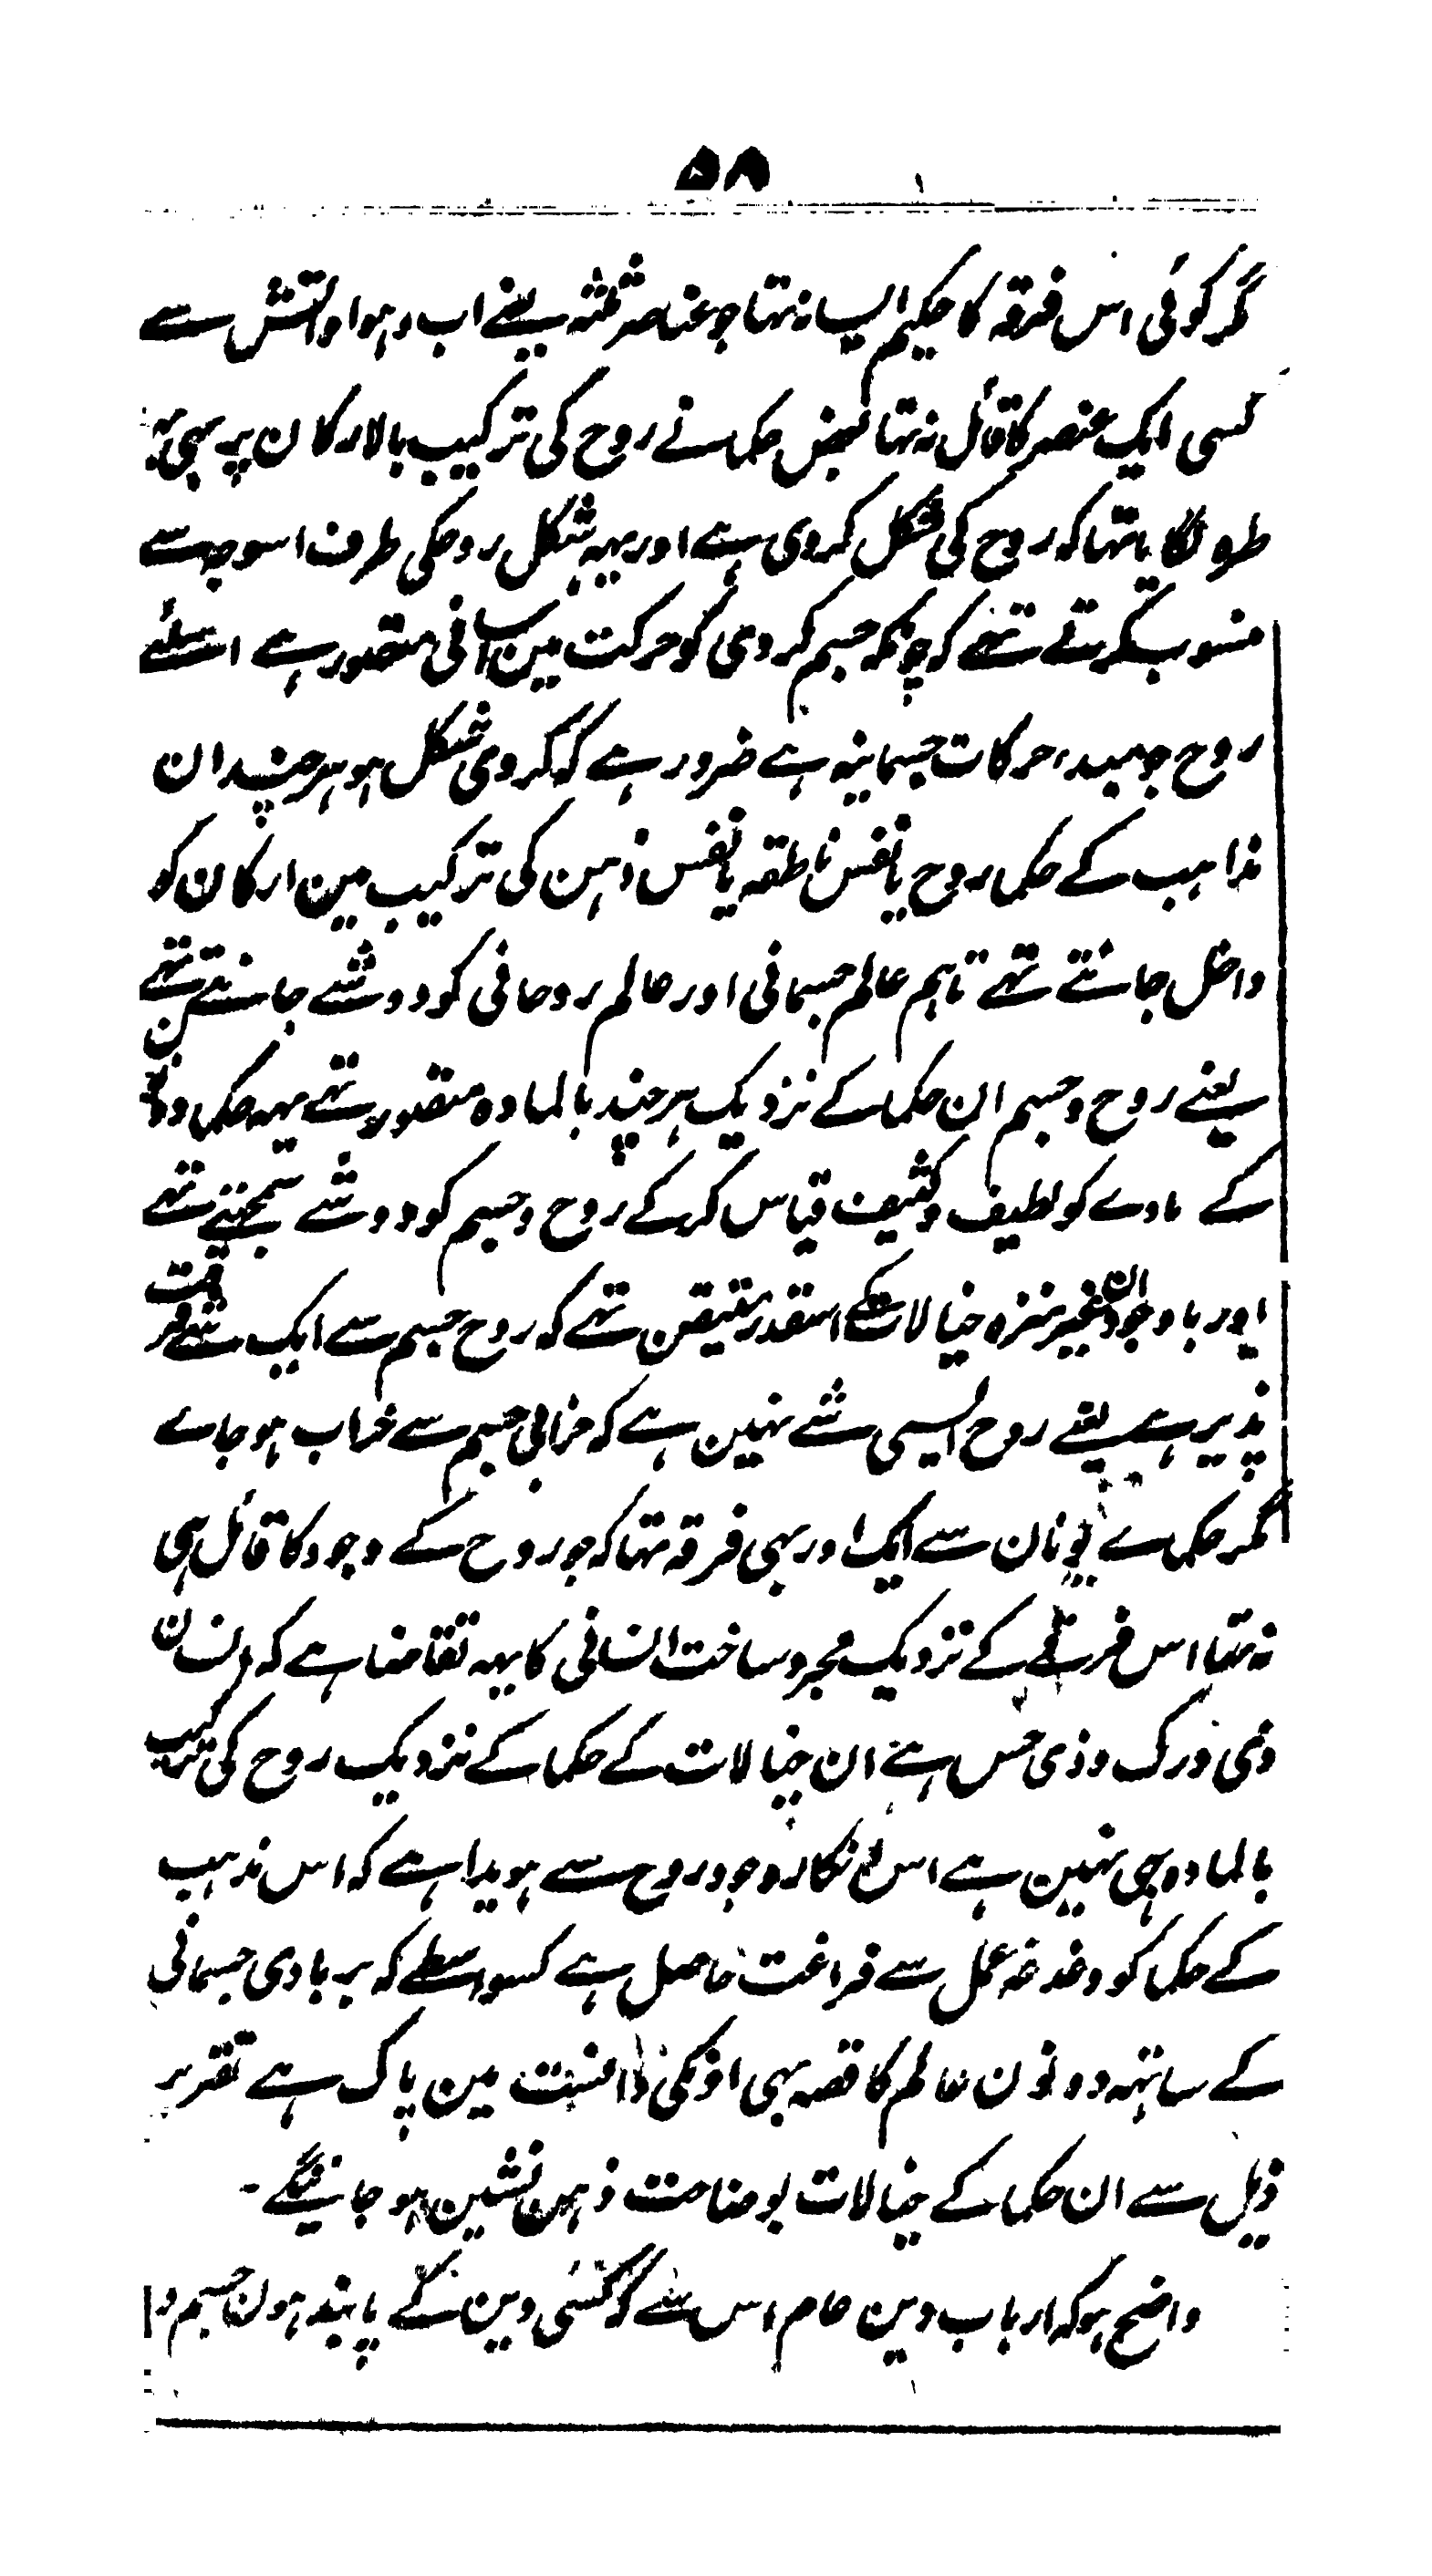 ۵۸
مگر کوئی اس فرقہ کا حکیم ایسا نہ تہا جو عناصر ثلثہ یعنے اب و ہوا و اتش سے
کسی ایک عنصر کا قائل نہ تہا بعض حکما نے روح کی ترکیب بالارکان پر بہی یہ
طرہ لگایا تہا کہ روح کی شکل کروی ہے اور یہہ شکل روحکی طرف اسوجہ سے
منسوب کرتے تہے کہ چونکہ جسم کروی کو حرکت مین اسانی متصور ہے اسلئے
روح جو مبدء حرکات جسمانیہ ہے ضرور ہے کہ کروی شکل ہو ہر چند ان
مذاہب کے حکما روح یا نفس ناطقہ یا نفس ذہن کی ترکیب مین ارکان کو
داخل جانتے تہے تاہم عالم جسمانی اور عالم روحانی کو دو شے جانتے تہے
یعنے روح و جسم ان حکما کے نزدیک ہر چند بالمادہ متصور تہے یہہ حکما دونون
کے مادے کو لطیف و کثیف قیاس کرکے روح و جسم کو دو شے سمجہتے تہے
اور باوجود ان غیر منزہ خیالات کے اسقدر متیقن تہے کہ روح جسم سے ایک شے فرقت
پذیر ہے یعنے روح ایسی شے نہین ہے کہ خرابی جسم سے خراب ہو جاے
مگر حکماے یونان سے ایک اور بہی فرقہ تہا کہ جو روح کے وجود کا قائل ہی
نہ تہا اس فرقے کے نزدیک مجرد ساخت انسانی کا یہہ تقاضا ہے کہ انسان
ذی درک و ذی حس ہے ان خیالات کے حکما کے نزدیک روح کی ترکیب
بالمادہ ہی نہین ہے اس انکار وجود روح سے ہویدا ہے کہ اس مذہب
کے حکما کو دغدغہ عمل سے فراغت حاصل ہے کسواسطے کہ بربادی جسمانی
کے ساتہہ دونون عالم کا قصہ بہی اونکی دانست مین پاک ہے تقریر
ذیل سے ان حکما کے خیالات بوضاحت ذہن نشین ہو جاینگے -
واضح ہو کہ ارباب دین عام اس سے کہ کسی دین کے پابند ہون جسم و